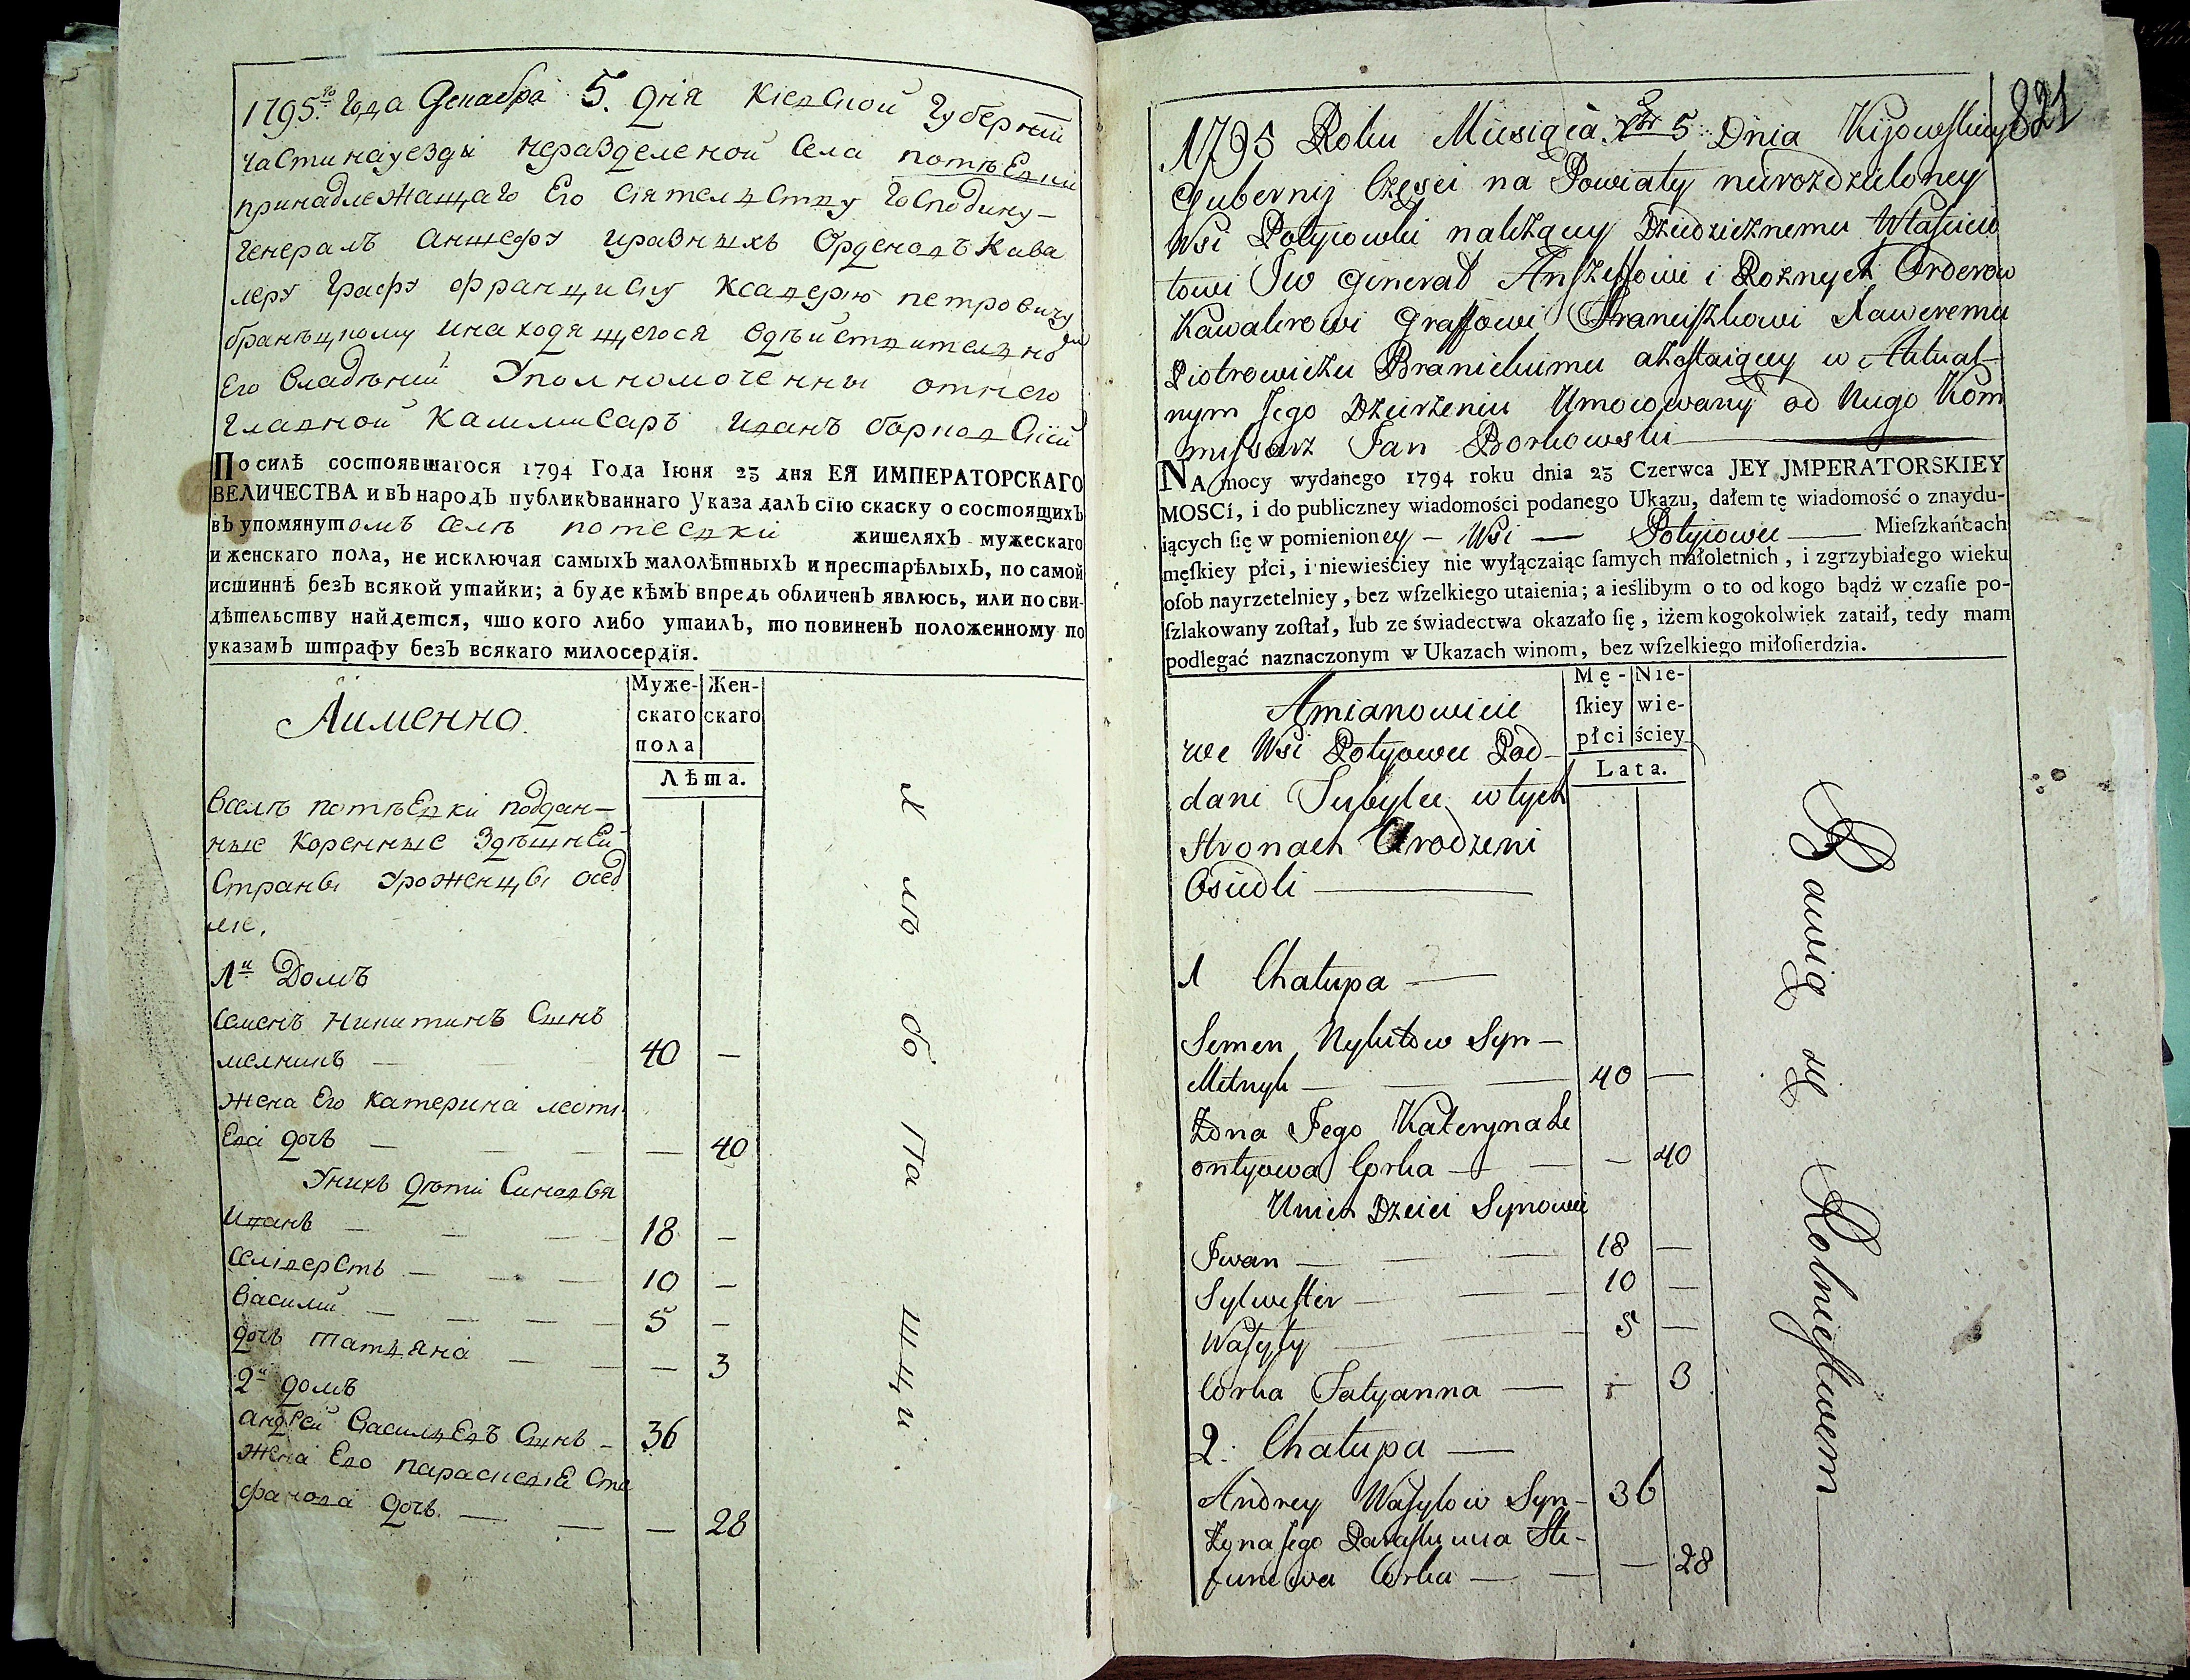 1795го Года Декабра 5. Дня Кіевской Губерніи
части науезды неразделеной Села потѣевки
принадлежащаго Его Сіятелству Господину
Генералъ Аншефу иразныхъ Орденовъ Кава
леру Графу Францыску Ксаверію петровичу
браницкому инаходящегося вдѣйствителномъ
Его владѣнии Уполномоченны отнего
главной Каммисаръ Иванъ борковскій
По силѣ состоявшагося 1794 Года Іюня 23 дня ЕЯ ИМПЕРАТОРСКАГО
ВЕЛИЧЕСТВА и въ народъ публикованнаго Указа далъ сїю скаску о состоящихъ
въ упомянутомъ Селѣ потеевки жителяхъ мужескаго
и женскаго пола, не исключая самыхъ малолѣтныхъ и престарѣлыхъ, по самой
истиннѣ безъ всякой утайки; а буде кѣмъ впредь обличенъ явлюсь, или по сви-
дѣтельству найдется, что кого либо утаилъ, то повиненъ положенному по
указамъ штрафу безъ всякаго милосердїя.
Аименно.
Муже-
скаго
пола
Жен-
скаго
Лѣта.
Вселѣ потѣевки поддан-
ные коренные здѣшней
Страны Уроженцы осед
лие.
1й Домъ
Семенъ Никитинъ Сынъ
мелникъ — 40 —
Жена Его Катерина леонти
Ева дочь — — 40
Унихъ дѣти Синовья
Иванъ — 18 —
Селіверстъ — 10 —
Василий — 5 —
дочь татяна — — 3
2й домъ
Андрей Василевъ Сынъ — 36
Жена Его парасковіе Сте
фанова дочь — — 28
хлѣбопашцы.
821
1795 Roku Miesiąca Xbr 5 Dnia Kijowskiey
Gubernij Częsci na Powiaty nierozdzieloney
Wsi Potyiowki należącey Dziedzicznemu Własciw
towi JW Generał Anszeffowi i Rożnych Orderow
Kawalerowi Graffowi Franciszkowi Xaweremu
Piotrowiczu Branickiemu azostaiącey w Aktual-
nym Jego Dzierżeniu Umocowany od Niego Kom
missarz Jan Borkowski
NA mocy wydanego 1794 roku dnia 23 Czerwca JEY JMPERATORSKIEY
MOSCI, i do publiczney wiadomości podanego Ukazu, dałem tę wiadomość o znaydu-
iących ſię w pomienioney — Wsi — Potyiowce — Mieſzkańcach
męſkiey płci, i niewieściey nie wyłączaiąc ſamych małoletnich, i zgrzybiałego wieku
oſob nayrzetelniey, bez wſzelkiego utaienia; a ieślibym o to od kogo bądź w czaſie po-
ſzlakowany zoſtał, lub ze świadectwa okazało ſię, iżem kogokolwiek zataił, tedy mam
podlegać naznaczonym w Ukazach winom, bez wſzelkiego miłoſierdzia.
Amianowicie
Mę-
ſkiey
płci
Nie-
wie-
ściey
Lata.
we Wsi Potyowce Pod-
dani Tubylce wtych
Stronach Urodzeni
Osiedli —
1 Chałupa —
Semen Nykitow Syn —
Melnyk — 40 —
Żona Jego Kateryna Le
ontyowa Corka — — 40
Unich Dzieci Synowie
Jwan — 18 —
Sylwester — 10 —
Wasyly — 5 —
Corka Tatyanna — — 3
2. Chałupa —
Andrey Wasylow Syn — 36
Żona Jego Paraskiewia Ste-
fanowa Corka — — 28
Bawią się Rolnictwem —